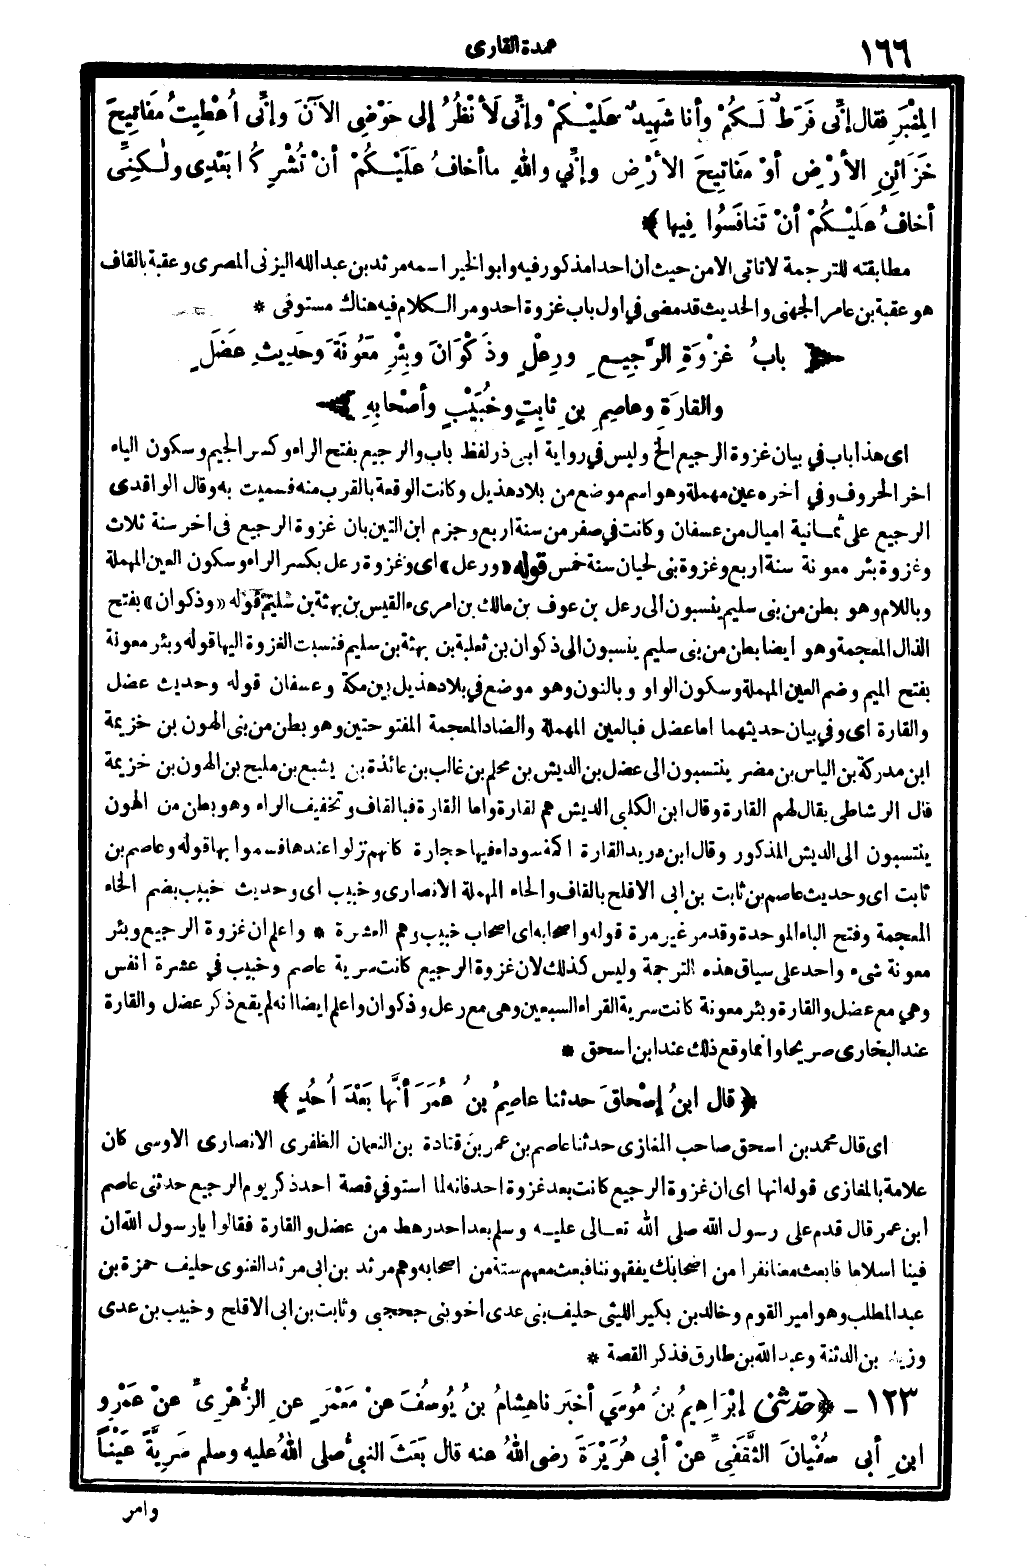 ١٦٦
عمدة القارى
المِنْبَرِ فقال إنِّى فَرَطٌ لَكُمْ وأنا شَهِيدٌ عَلَيْكُمْ وإنِّى لَأَنْظُرُ إلى حَوْضِى الآنَ وإنِّى أُعْطِيتُ مَفاتِيحَ
خَزَائِنِ الأرْضِ أوْ مَفَاتِيحَ الأرْضِ وإنِّي واللهِ ماأخافُ عَلَيْكُمْ أنْ تُشْرِكُوا بَعْدِى ولٰكِنِّى
أخافُ عَلَيْكُمْ أنْ تَنافَسُوا فِيها ﴾
مطابقته للترجمة لاتاتى الامن حيث ان احدا مذكور فيه وابو الخير اسمه مرثد بن عبدالله اليزنى المصرى وعقبة بالقاف
هو عقبة بن عامر الجهنى والحديث قد مضى في اول باب غزوة احد ومر الكلام فيه هناك مستوفى *
﴿ بابُ غزْوَةِ الرَّجِيعِ ورِعْلٍ وذَكْوَانَ وبِئْرِ مَعُونَةَ وحَدِيثِ عَضَلٍ
والقارَةِ وعاصِمِ بنِ ثابِتٍ وخُبَيْبٍ وأصْحابِهِ ﴾
اى هذا باب في بيان غزوة الرجيع الخ وليس في رواية ابى ذر لفظ باب والرجيع بفتح الراء وكسر الجيم وسكون الياء
اخر الحروف وفي اخره عين مهملة وهو اسم موضع من بلاد هذيل وكانت الوقعة بالقرب منه فسميت به وقال الواقدى
الرجيع على ثمانية اميال من عسفان وكانت في صفر من سنة اربع وجزم ابن التين بان غزوة الرجيع فى اخر سنة ثلاث
وغزوة بئر معونة سنة اربع وغزوة بنى لحيان سنة خمس قوله «ورعل» اى وغزوة رعل بكسر الراء وسكون العين المهملة
وباللام وهو بطن من بنى سليم ينسبون الى رعل بن عوف بن مالك بن امرىء القيس بن بهثة بن سليم قوله «وذكوان» بفتح
الذال المعجمة وهو ايضا بطن من بنى سليم ينسبون الى ذكوان بن ثعلبة بن بهثة بن سليم فنسبت الغزوة اليها قوله وبئر معونة
بفتح الميم وضم العين المهملة وسكون الواو وبالنون وهو موضع في بلاد هذيل بين مكة وعسفان قوله وحديث عضل
والقارة اى وفي بيان حديثهما اما عضل فبالعين المهملة والضاد المعجمة المفتوحتين وهو بطن من بنى الهون بن خزيمة
ابن مدركة بن الياس بن مضر ينتسبون الى عضل بن الديش بن محلم بن غالب بن عائذة بن يشيع بن مليح بن الهون بن خزيمة
قال الرشاطى يقال لهم القارة وقال ابن الكلبى الديش هم القارة واما القارة فبالقاف وتخفيف الراء وهو بطن من الهون
ينتسبون الى الديش المذكور وقال ابن دريد القارة اكمة سوداء فيها حجارة كانهم نزلوا عندها فسموا بها قوله وعاصم بن
ثابت اى وحديث عاصم بن ثابت بن ابى الاقلح بالقاف والحاء المهملة الانصارى وخبيب اى وحديث خبيب بضم الخاء
المعجمة وفتح الباء الموحدة وقد مر غير مرة قوله واصحابه اى اصحاب خبيب وهم العشرة * واعلم ان غزوة الرجيع وبئر
معونة شىء واحد على سياق هذه الترجمة وليس كذلك لان غزوة الرجيع كانت سرية عاصم وخبيب في عشرة انفس
وهي مع عضل والقارة وبئر معونة كانت سرية القراء السبعين وهى مع رعل وذكوان واعلم ايضا انه لم يقع ذكر عضل والقارة
عند البخارى صريحا وانما وقع ذلك عند ابن اسحق *
﴿ قال ابنُ إسْحاقَ حدثنا عاصِمُ بنُ عُمَرَ أنَّها بَعْدَ أُحُدٍ ﴾
اى قال محمد بن اسحق صاحب المغازى حدثنا عاصم بن عمر بن قتادة بن النعمان الظفرى الانصارى الاوسى كان
علامة بالمغازى قوله انها اى ان غزوة الرجيع كانت بعد غزوة احد فانه لما استوفي قصة احد ذكر يوم الرجيع حدثنى عاصم
ابن عمر قال قدم على رسول الله صلى الله تعالى عليه وسلم بعد احد رهط من عضل والقارة فقالوا يا رسول الله ان
فينا اسلاما فابعث معنا نفرا من اصحابك يفقهوننا فبعث معهم ستة من اصحابه وهم مرثد بن ابى مرثد الغنوى حليف حمزة بن
عبد المطلب وهو امير القوم وخالد بن بكير الليثى حليف بنى عدى اخو بنى جحجبى وثابت بن ابى الاقلح وخبيب بن عدى
وزيد بن الدثنة وعبد الله بن طارق فذكر القصة *
١٢٣ - ﴿ حَدَّثَنى إبْرَاهِيمُ بنُ مُوسَى أخبَرَناهِشامُ بنُ يُوسُفَ عنْ مَعْمَرٍ عنِ الزُّهْرِىِّ عنْ عَمْرِو
ابنِ أبى سُفْيانَ الثَّقَفِىِّ عنْ أبى هُرَيْرَةَ رضى اللهُ عنه قال بَعَثَ النبىُّ صلى اللهُ عليه وسلم سَرِيَّةً عَيْناً
وامر